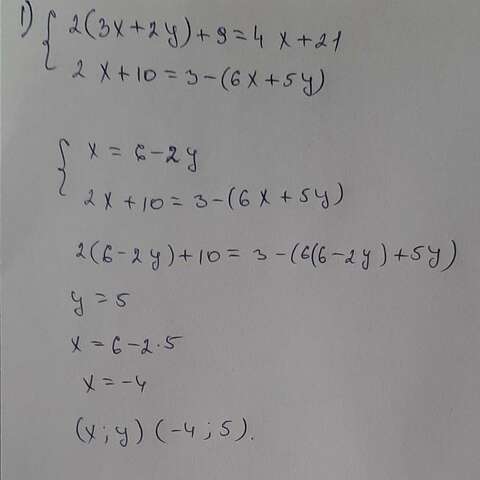 1) { 2(3x+2y)+9=4x+21
2x+10=3-(6x+5y)
{ x=6-2y
2x+10=3-(6x+5y)
2(6-2y)+10=3-(6(6-2y)+5y)
y=5
x=6-2·5
x=-4
(x;y) (-4;5).